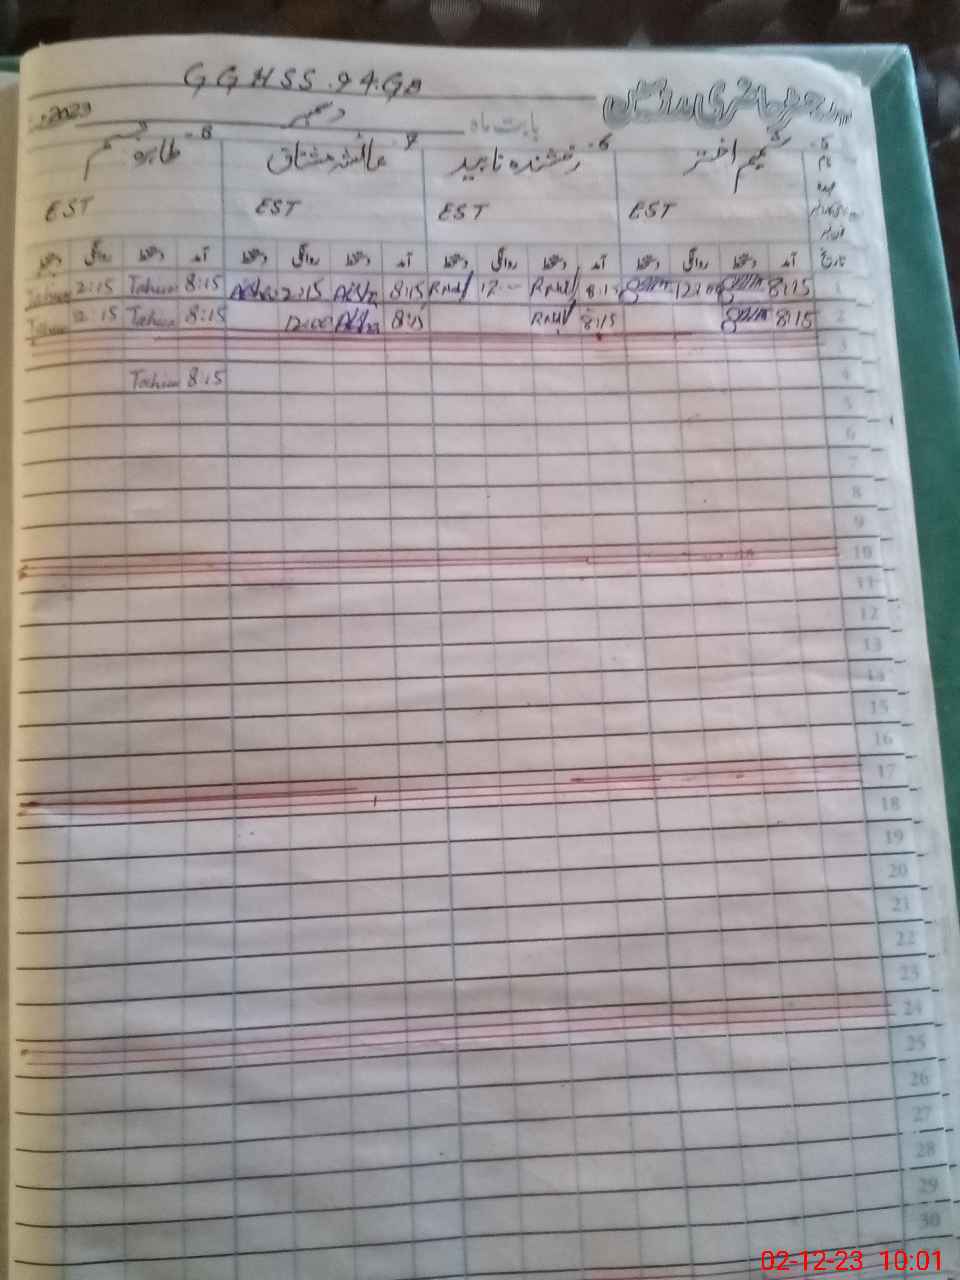 GGHSS.94.GB
رجسٹر حاضری مدرسین
بابت ماہ دسمبر 2023
5. شمیم اختر 6. رخشندہ ناہید 7. عائشہ مشتاق 8. طاہرہ تبسم
نام
عہدہ
EST EST EST EST
تاریخ آمد دستخط روانگی دستخط آمد دستخط روانگی دستخط آمد دستخط روانگی دستخط آمد دستخط روانگی دستخط
1 8:15 8:15 8:15 2:15 8:15 Tahira 2:15 Tahira
2 8:15 8:15 8:15 12:00 8:15 Tahira 12:15
3
4 8:15 Tahira
5
6
7
8
9
10
11
12
13
14
15
16
17
18
19
20
21
22
23
24
25
26
27
28
29
30
02-12-23 10:01